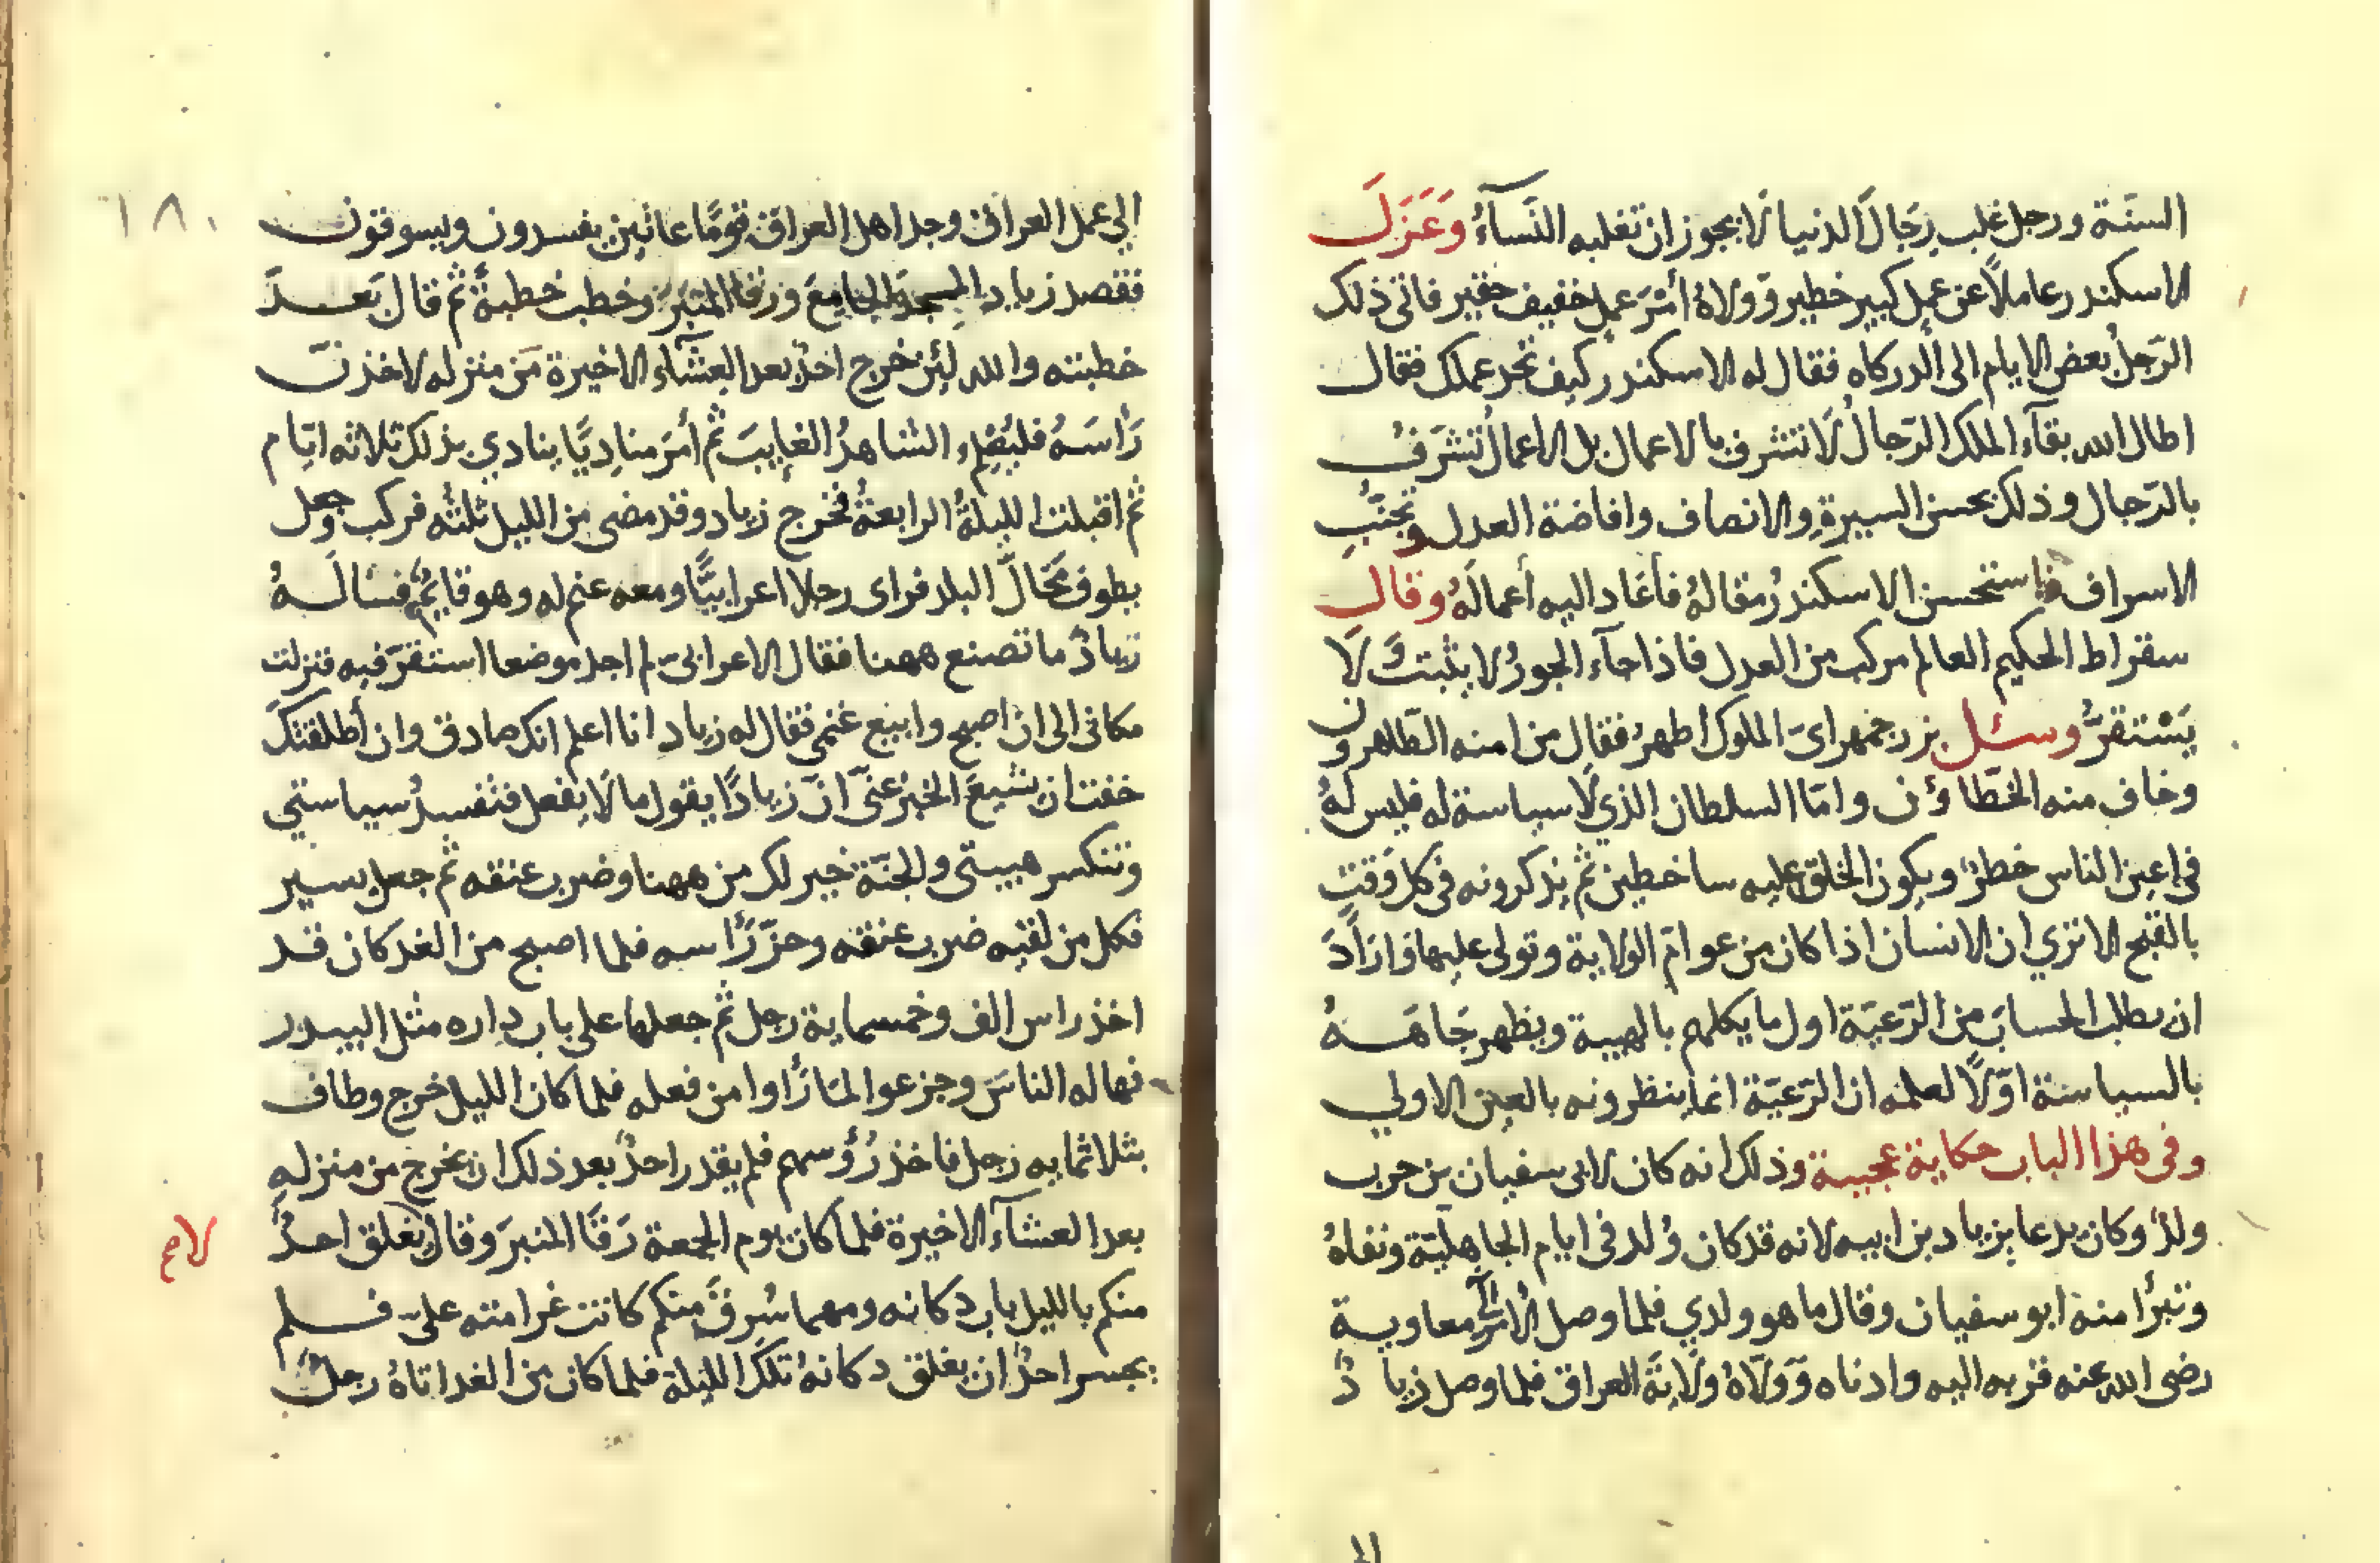 السنة ورجل غلب رجال الدنيا لا يجوز ان تغلبه النسآء وعزل
الاسكندر عاملا عن عمل كبير خطير وولاه أمر عمل خفيف حقير فاتى ذلك
الرجل بعض الايام الى الدركاه فقال له الاسكندر كيف تجد عملك فقال
اطال الله بقآء الملك الرجال لا تتشرف بالاعمال بل الاعمال تتشرف
بالرجال وذلك بحسن السيرة والانصاف وافاضة العدل وتجنب
الاسراف فاستحسن الاسكندر مقاله فأعاد اليه أعماله وقال
سقراط الحكيم العالم مركب من العدل فاذا جآء الجور لا يثبت ولا
يستقر وسئل بزرجمهر اى الملوك اطهر فقال من امنه الطاهرون
وخاف منه الخطاؤن واما السلطان الذي لا سياسة له فليس له
في اعين الناس خطر ويكون الخلق عليه ساخطين ثم يذكرونه في كل وقت
بالقبح الا ترى ان الانسان اذا كان من عوام الولاية وتولى عليها واراد
ان يطلب الحساب من الرعية اول ما يكلمهم بالهيبة ويظهر جاهه
بالسياسة اولا لعلمه ان الرعية انما ينظرونه بالعين الاولي
وفى هذا الباب حكاية عجيبة وذلك انه كان لابى سفيان بن حرب
ولد وكان يدعا بزياد بن ابيه لانه قد كان ولد في ايام الجاهلية ونفاه
وتبرأ منه ابو سفيان وقال ما هو ولدي فلما وصل الامر الى معاوية
رضى الله عنه قربه اليه وادناه وولاه ولاية العراق فلما وصل زياد
الى
١٨٠
الي عمل العراق وجد اهل العراق قوما عاثين يفسدون ويسوقون
فقصد زياد المسجد الجامع ورقا المنبر وخطب خطبة ثم قال بعد
خطبته والله لئن خرج احد بعد العشآء الاخيرة من منزله لاخذن
رأسه فليعلم الشاهد الغايب ثم أمر مناديا ينادي بذلك ثلاثه ايام
ثم اقبلت الليلة الرابعة فخرج زياد وقد مضى من الليل ثلثه فركب وجعل
يطوف محال البلد فراى رجلا اعرابيا ومعه غنم له وهو قايم فساله
زياد ما تصنع ههنا فقال الاعرابى لم اجد موضعا استقر فيه فنزلت
مكانى الى ان اصبح وابيع غنمي فقال له زياد انا اعلم انك صادق وان أطلقتك
خفت ان تشيع الخبر عني ان زيادا يقول ما لا يفعل فتفسد سياستي
وتنكسر هيبتى والجنة خير لك من ههنا وضرب عنقه ثم جعل يسير
فكل من لقيه ضرب عنقه وحز رأسه فلما اصبح من الغد كان قد
اخذ راس الف وخمسماية رجل ثم جعلها على باب داره مثل البيدر
فهاله الناس وجزعوا لما رأوا من فعله فلما كان الليل خرج وطاف
بثلاثمايه رجل فاخذ رؤسهم فلم يقدر احد بعد ذلك ان يخرج من منزله
بعد العشآء الاخيرة فلما كان يوم الجمعة رقا المنبر وقال يغلق احد
منكم بالليل باب دكانه ومهما سرق منكم كانت غرامته علي فلم
يجسر احد ان يغلق دكانه تلك الليلة فلما كان من الغد اتاه رجل
لا صح